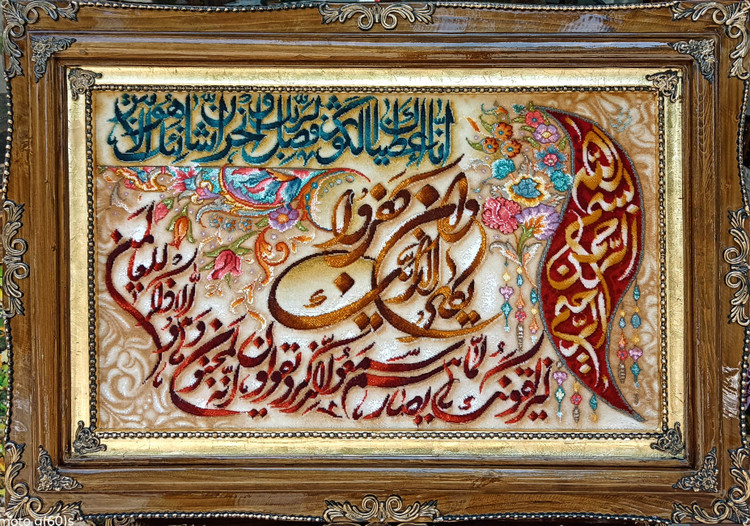 بسم الله الرحمن الرحیم
انا اعطیناک الکوثر فصل لربک وانحر ان شانئک هو الابتر
وان یکاد الذین کفروا
لیزلقونک بابصارهم لما سمعوا الذکر و یقولون انه لمجنون
و ما هو الا ذکر للعالمین
moto g(60)s